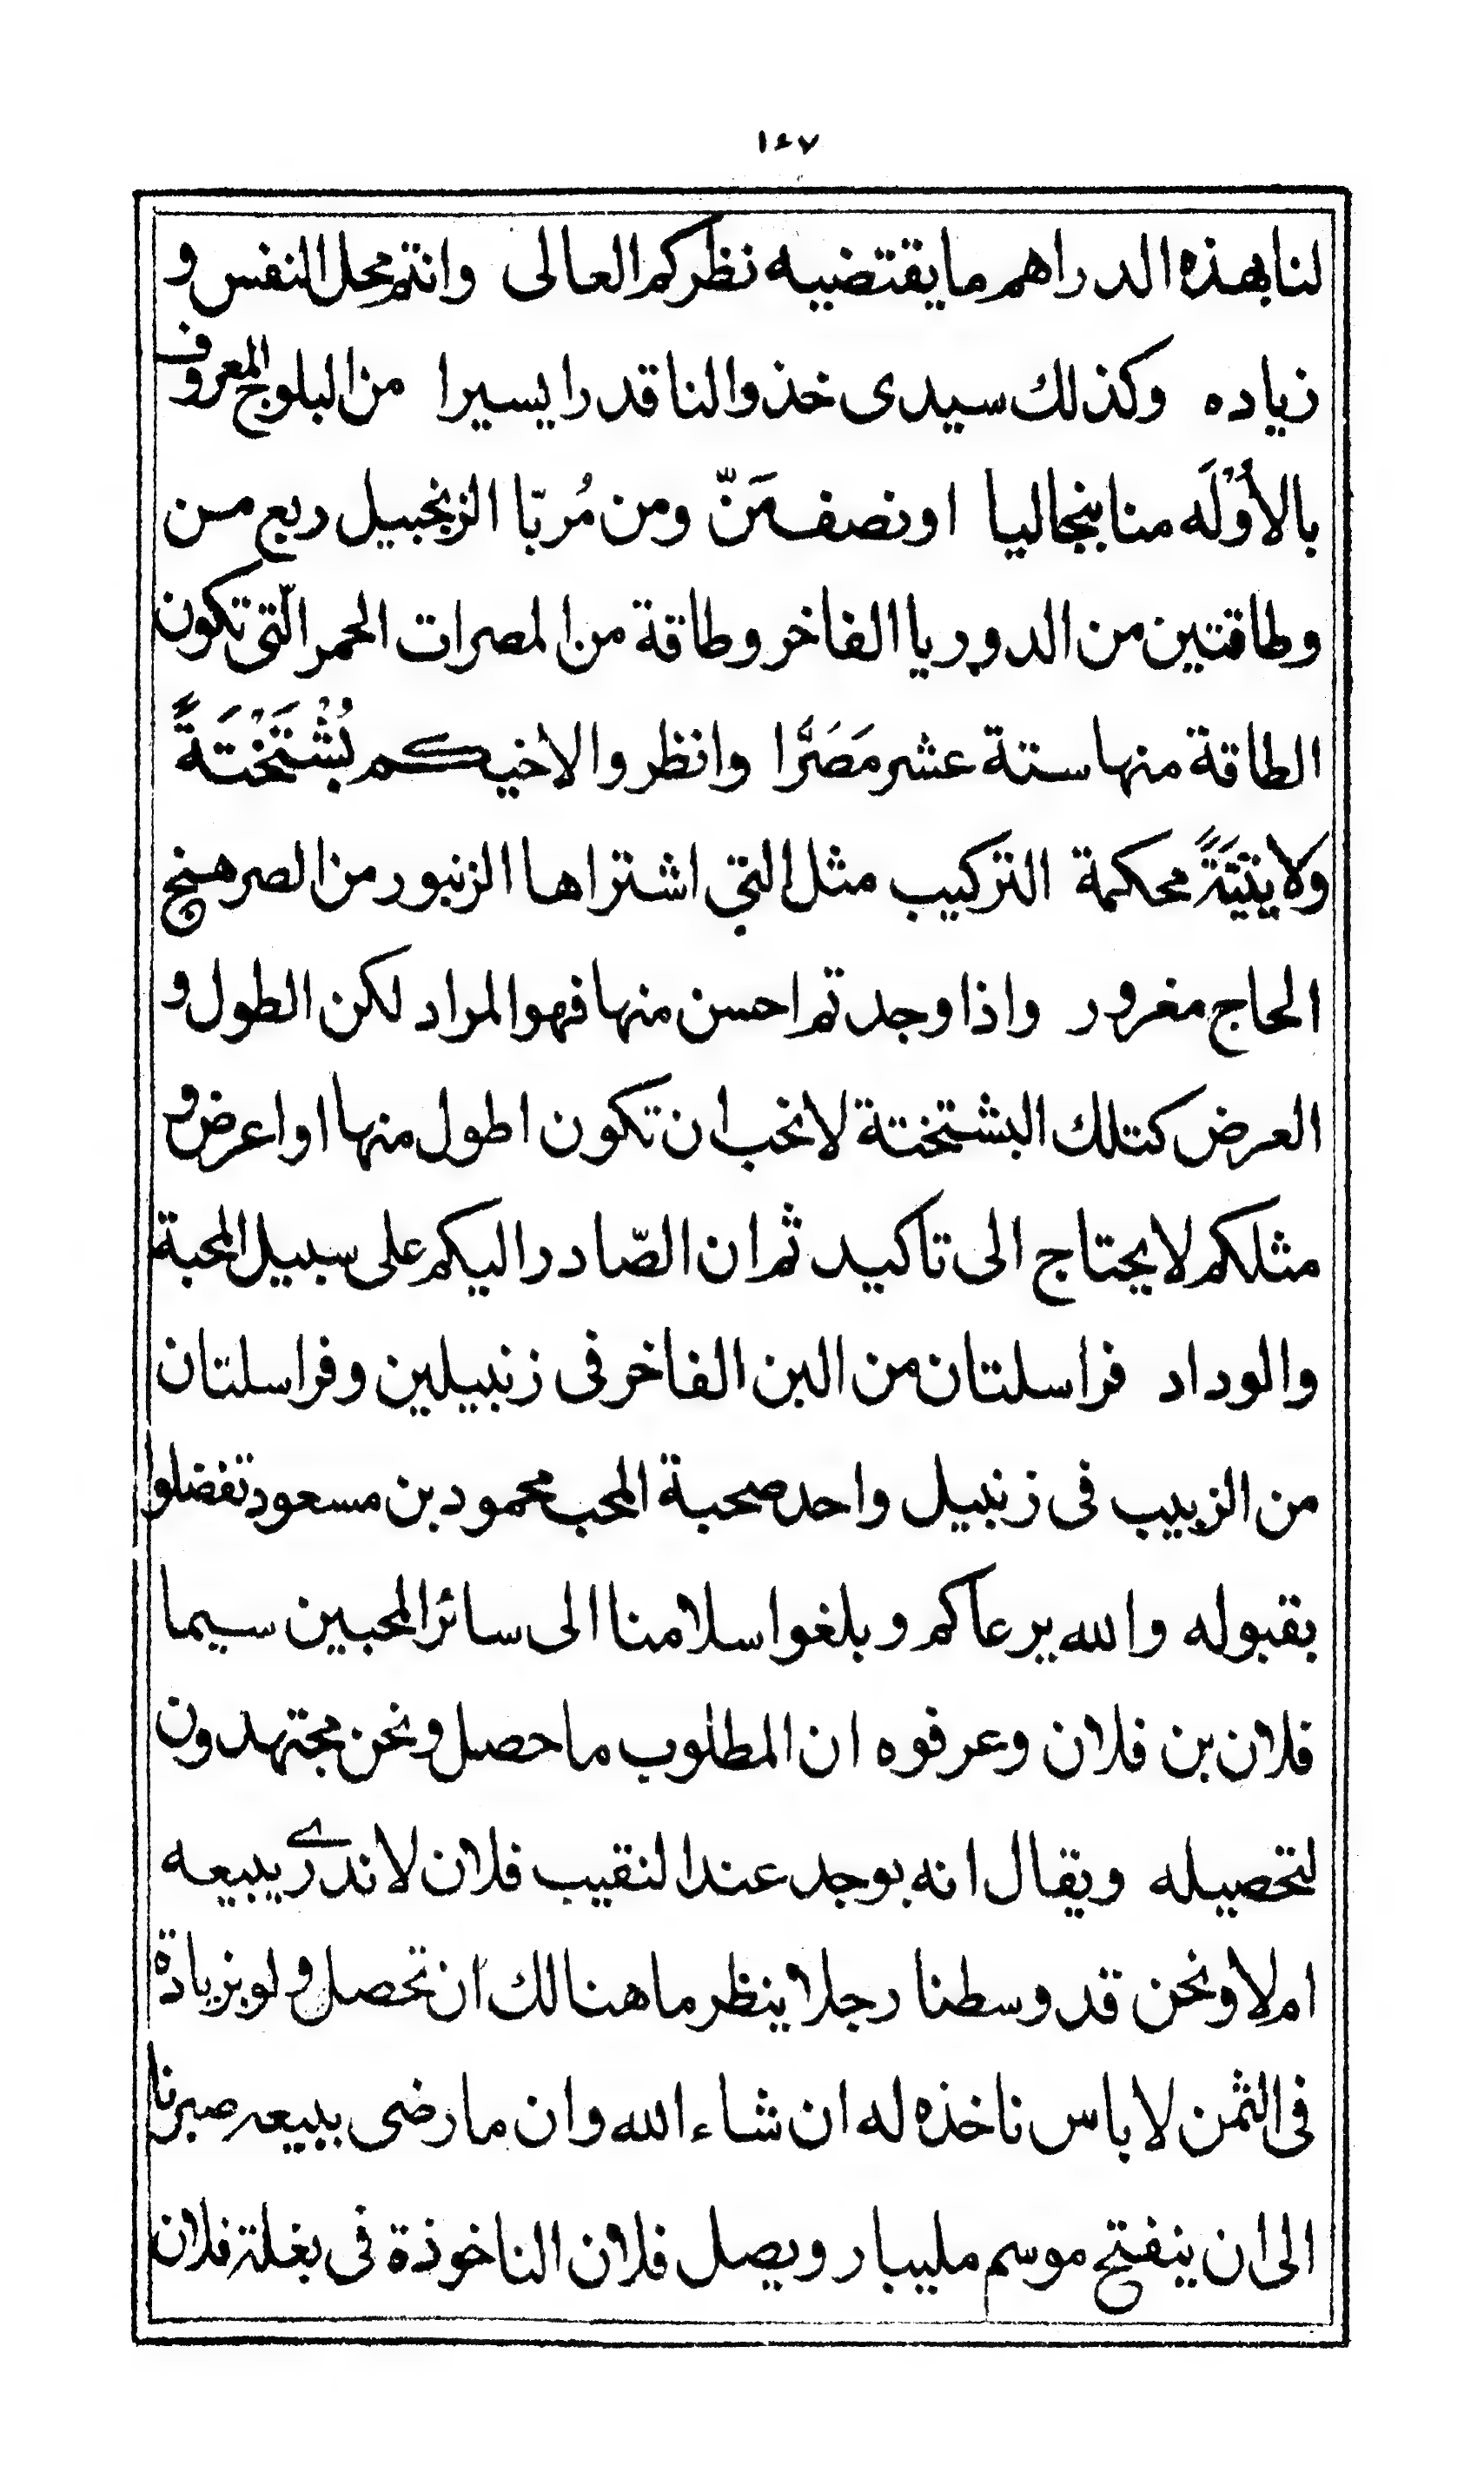 ١٤٧
لنا بهذه الدراهم ما يقتضيه نظركم العالى وانتم محل النفس و
زياده وكذلك سيدى خذوا لنا قدرا يسيرا من البلوج المعروف
بالأوْلَه منا بنجاليا او نصف مَنّ ومن مُربّا الزنجبيل ربع من
وطاقتين من الدوريا الفاخر وطاقة من المصرات الحمر الّتى تكون
الطاقة منها ستة عشر مَصَرًّا وانظروا لاخيكم بُشْتَخْتَةً
ولايتيّةً محكمة التركيب مثل التى اشتراها الزنبور من الصرهنج
الحاج مغرور واذا وجدتم احسن منها فهو المراد لكن الطول و
العرض كتلك البشتختة لا نحب ان تكون اطول منها او اعرض و
مثلكم لا يحتاج الى تاكيد ثم ان الصّادر اليكم على سبيل المحبة
والوداد فراسلتان من البن الفاخر فى زنبيلين وفراسلتان
من الزبيب فى زنبيل واحد صحبة المحب محمود بن مسعود تفضلوا
بقبوله والله يرعاكم وبلغوا سلامنا الى سائر المحبين سيما
فلان بن فلان وعرفوه ان المطلوب ما حصل ونحن مجتهدون
لتحصيله ويقال انه يوجد عند النقيب فلان لا ندرى يبيعه
ام لا ونحن قد وسطنا رجلا ينظر ما هنالك ان تحصل ولو بزيادة
فى الثمن لا باس ناخذه له ان شاء الله وان ما رضى ببيعه صبرنا
الى ان ينفتح موسم مليبار ويصل فلان الناخوذة فى بغلة فلان